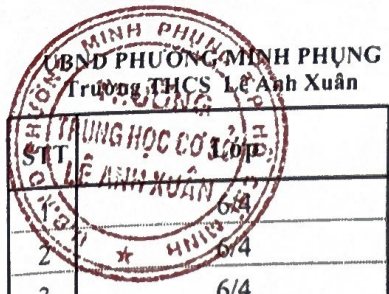 UBND PHƯỜNG MINH PHỤNG
Trường THCS Lê Anh Xuân
STT Lớp
1 6/4
2 6/4
3 6/4
TRƯỜNG
TRUNG HỌC CƠ SỞ
LÊ ANH XUÂN